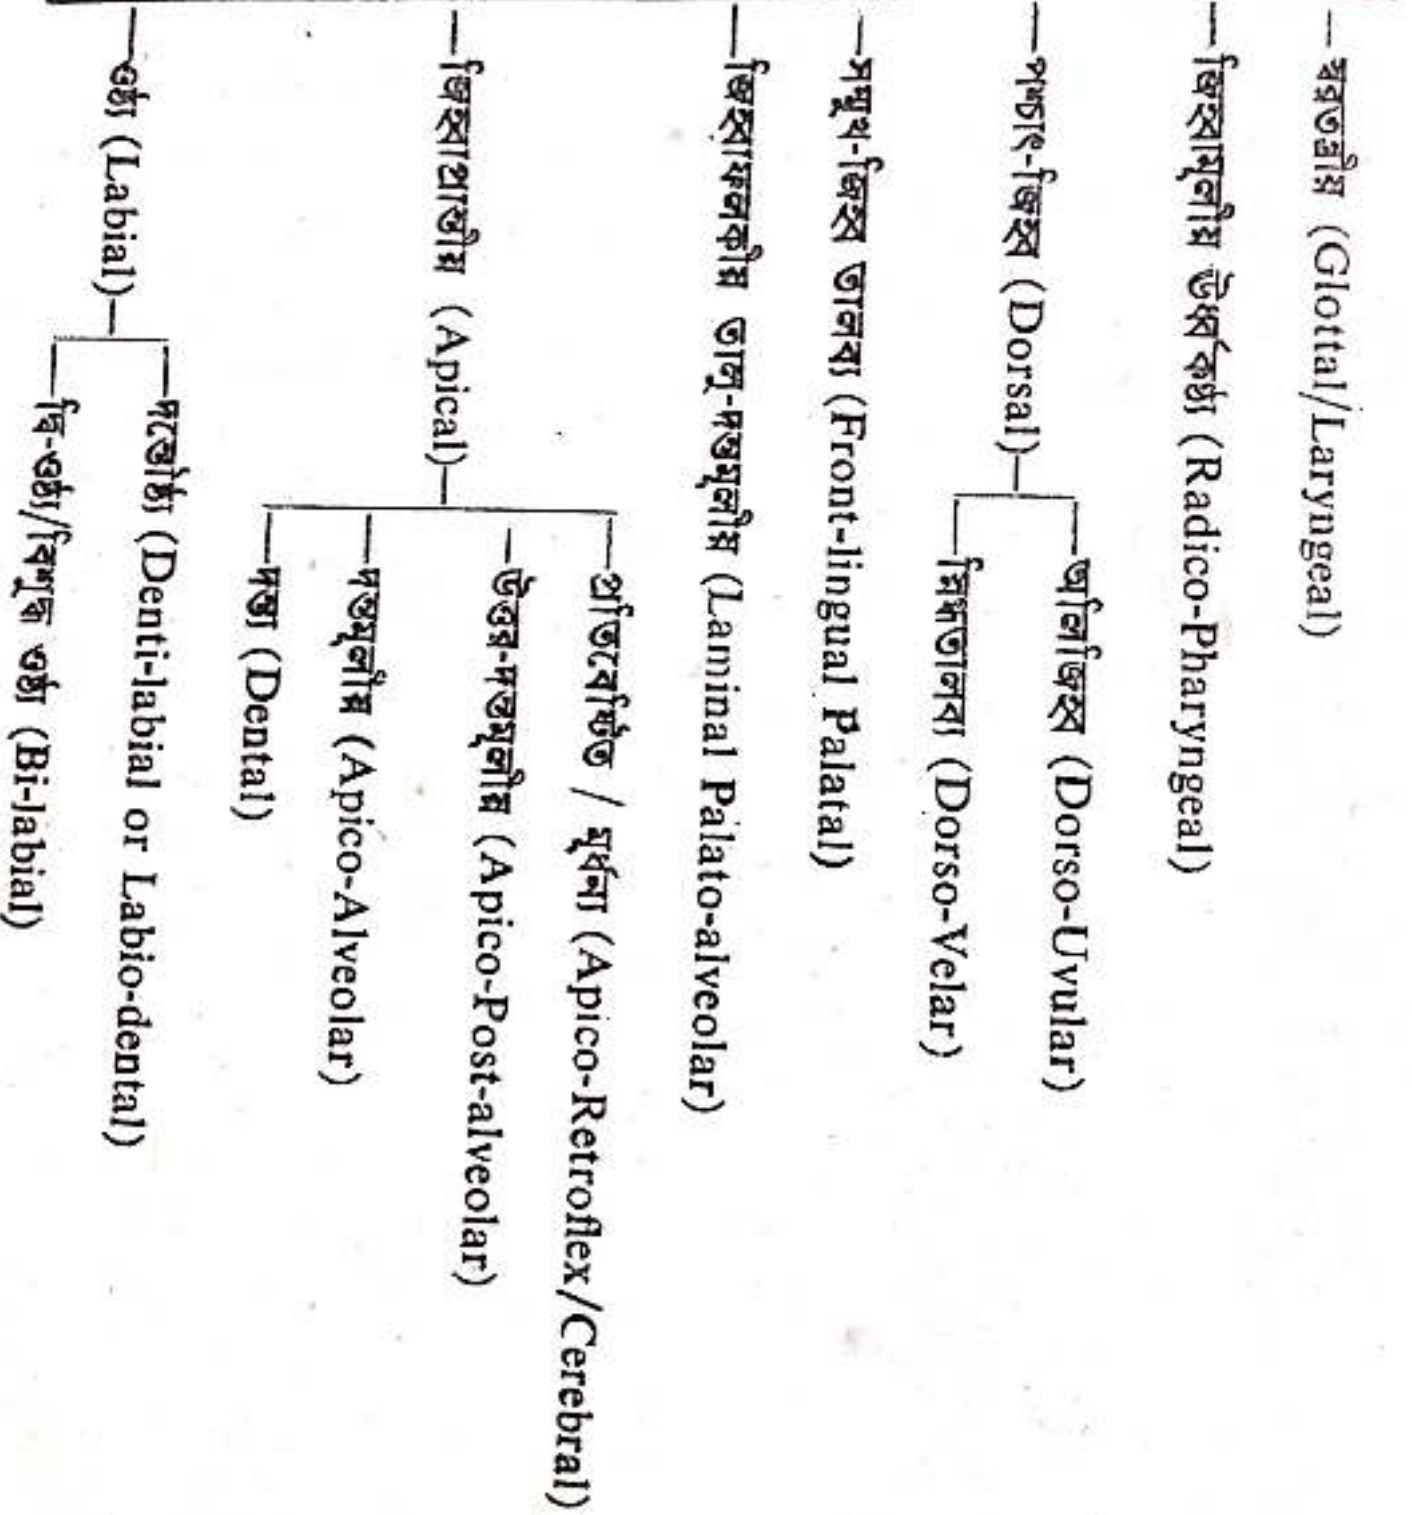 স্বরতন্ত্রীয় (Glottal/Laryngeal)
জিহ্বামূলীয় ঊর্ধ্ব কণ্ঠ্য (Radico-Pharyngeal)
পশ্চাৎ-জিহ্ব (Dorsal)
অলিজিহ্ব (Dorso-Uvular)
স্নিগ্ধতালব্য (Dorso-Velar)
সম্মুখ-জিহ্ব তালব্য (Front-lingual Palatal)
জিহ্বাফলকীয় তালু-দন্তমূলীয় (Laminal Palato-alveolar)
জিহ্বাপ্রান্তীয় (Apical)
প্রতিবেষ্টিত / মূর্ধন্য (Apico-Retroflex/Cerebral)
উত্তর-দন্তমূলীয় (Apico-Post-alveolar)
দন্তমূলীয় (Apico-Alveolar)
দন্ত্য (Dental)
ওষ্ঠ্য (Labial)
দন্তৌষ্ঠ্য (Denti-labial or Labio-dental)
দ্বি-ওষ্ঠ্য/বিশুদ্ধ ওষ্ঠ্য (Bi-labial)